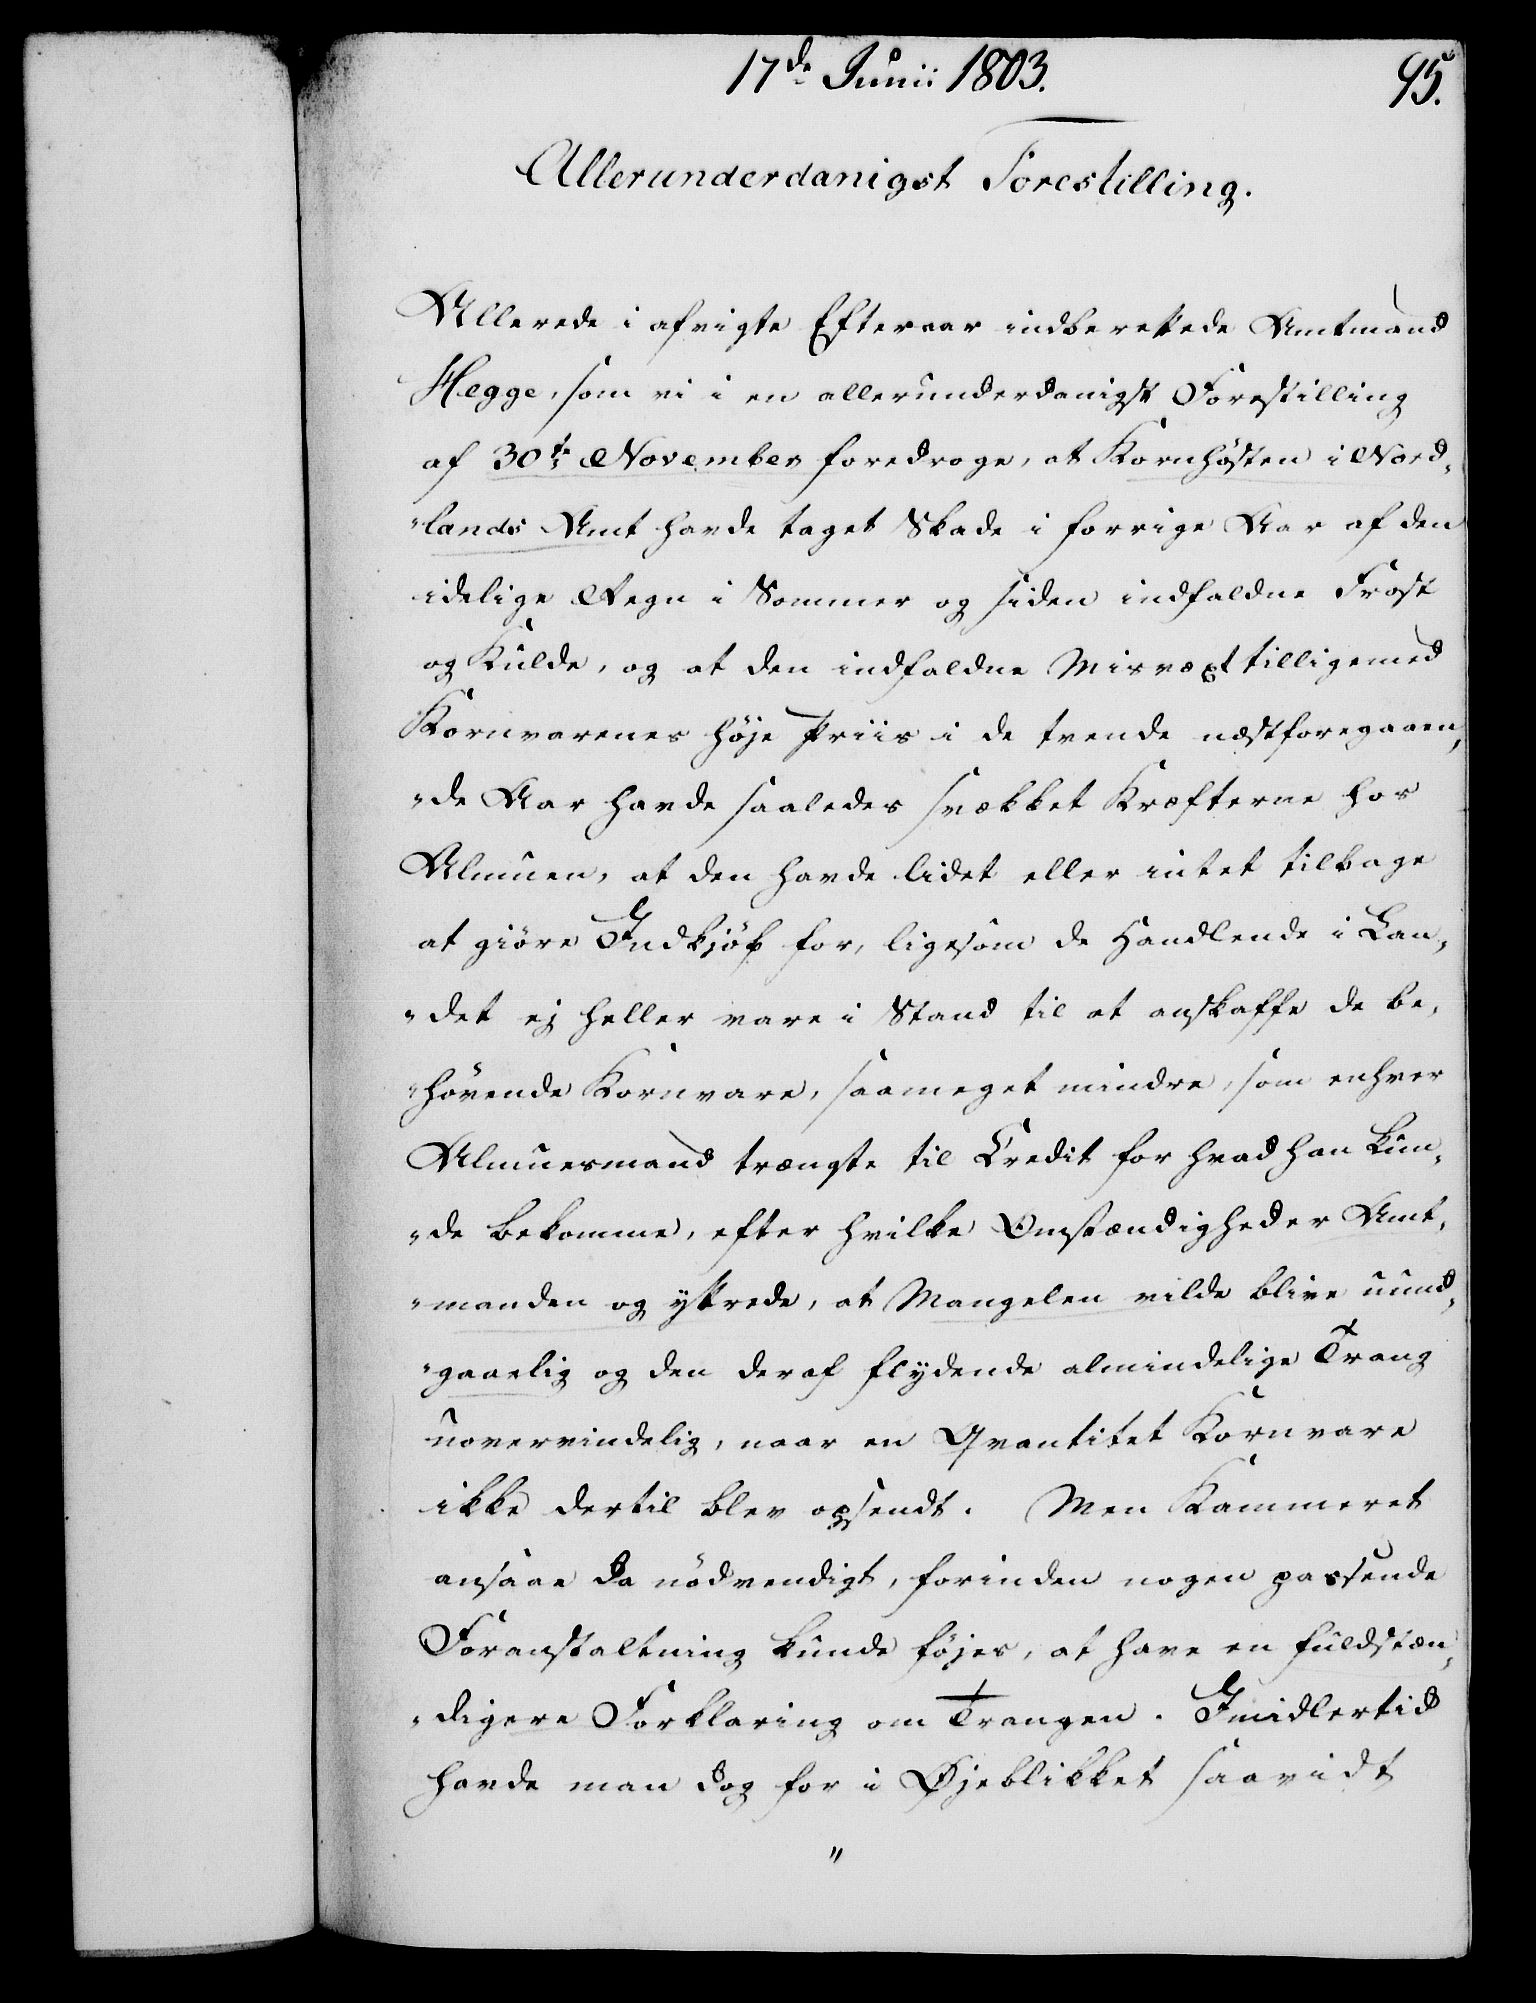 17de Junii 1803.
95.
Allerunderdanigst Forestilling.
Allerede i afvigte Efteraar indberettede Amtmand
Hegge, som vi i en allerunderdanigst Forestilling
af 30te November foredroge, at Kornhösten i Nord„
„lands Amt havde taget Skade i forrige Aar af den
idelige Regn i Sommer og siden indfaldne Frost
og Kulde, og at den indfaldne Misvæxt tilligemed
Kornvarenes höje Priis i de trende næstforegaaen„
„de Aar havde saaledes svækket Kræfterne hos
Almuen, at den havde lidet eller intet tilbage
at giöre Indkjöb for, ligesom de Handlende i Lan„
„det ej heller vare i Stand til at anskaffe de be„
„hövende Kornvare, saameget mindre, som enhver
Almuesmand trængte til Credit for hvad han kun„
„de bekomme, efter hvilke Omstændigheder Amt„
„manden og yttrede, at Mangelen vilde blive uund„
„gaaelig og den deraf flydende almindelige Trang
uovervindelig, naar en Qvantitet Kornvare
ikke dertil blev opsendt. Men Kammeret
ansaae da nödvendigt, forinden nogen passende
Foranstaltning kunde föjes, at have en fuldstæn„
„digere Forklaring om Trangen. Imidlertid
havde man dog for i Øjeblikket saavidt
"